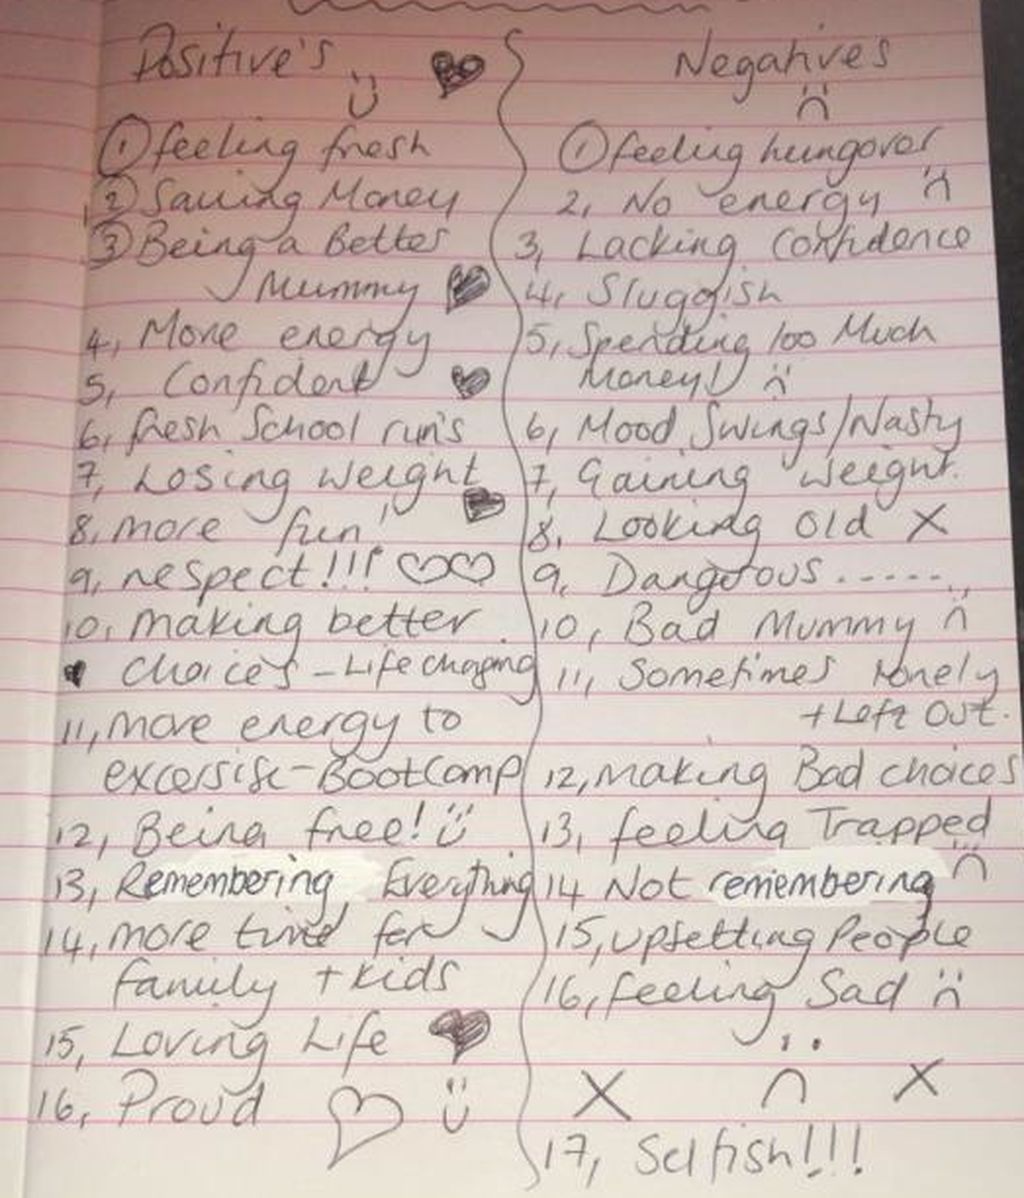 Positive's
① feeling fresh
② Saving Money
③ Being a Better
Mummy
4, More energy
5, Confident
6, fresh School run's
7, Losing weight
8, more fun!
9, respect!!!
10, making better
choices - Life changing
11, more energy to
excersise - BootCamp
12, Being free!
13, Remembering Everything
14, more time for
family + kids
15, Loving Life
16, Proud
Negatives
① feeling hungover
2, No energy
3, Lacking Confidence
4, Sluggish
5, Spending too Much
Money!
6, Mood Swings/Nasty
7, Gaining weight.
8, Looking old X
9, Dangerous......
10, Bad Mummy
11, Sometimes lonely
+ Left Out.
12, making Bad choices
13, feeling Trapped
14 Not remembering
15, upsetting People
16, feeling Sad
X X
17, Selfish!!!